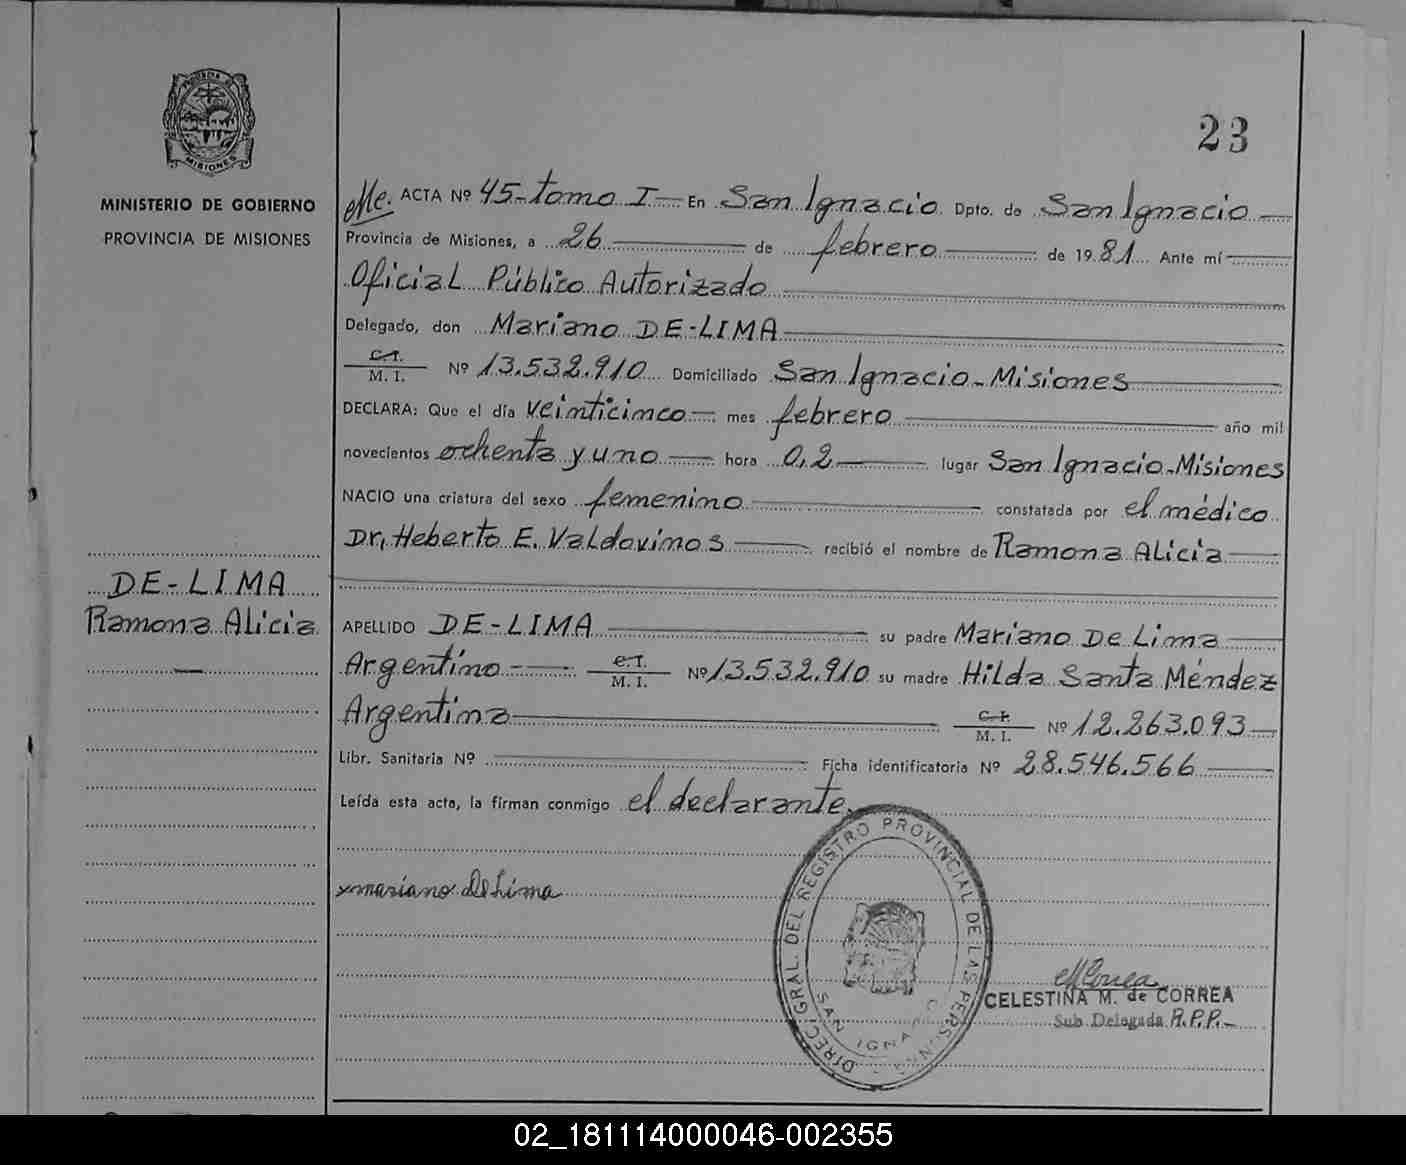 PROVINCIA DE
MISIONES
MINISTERIO DE GOBIERNO
PROVINCIA DE MISIONES
DE-LIMA
Ramona Alicia
23
ACTA Nº 45-tomo I En San Ignacio Dpto. de San Ignacio
Provincia de Misiones, a 26 de febrero de 1981 Ante mí
Oficial Público Autorizado
Delegado, don Mariano DE-LIMA
C.I.
M. I. Nº 13.532.910 Domiciliado San Ignacio-Misiones
DECLARA: Que el día veinticinco mes febrero año mil
novecientos ochenta y uno hora 0,2 lugar San Ignacio-Misiones
NACIO una criatura del sexo femenino constatada por el médico
Dr. Heberto E. Valdovinos recibió el nombre de Ramona Alicia
APELLIDO DE-LIMA su padre Mariano De Lima
Argentino C.I.
M. I. Nº 13.532.910 su madre Hilda Santa Méndez
Argentina C.I.
M. I. Nº 12.263.093
Libr. Sanitaria Nº Ficha identificatoria Nº 28.546.566
Leída esta acta, la firman conmigo el declarante.
mariano De Lima
DIREC. GRAL. DEL REGISTRO PROVINCIAL DE LAS PERSONAS
SAN IGNACIO
MCorrea
CELESTINA M. de CORREA
Sub Delegada R.P.P.
02_181114000046-002355